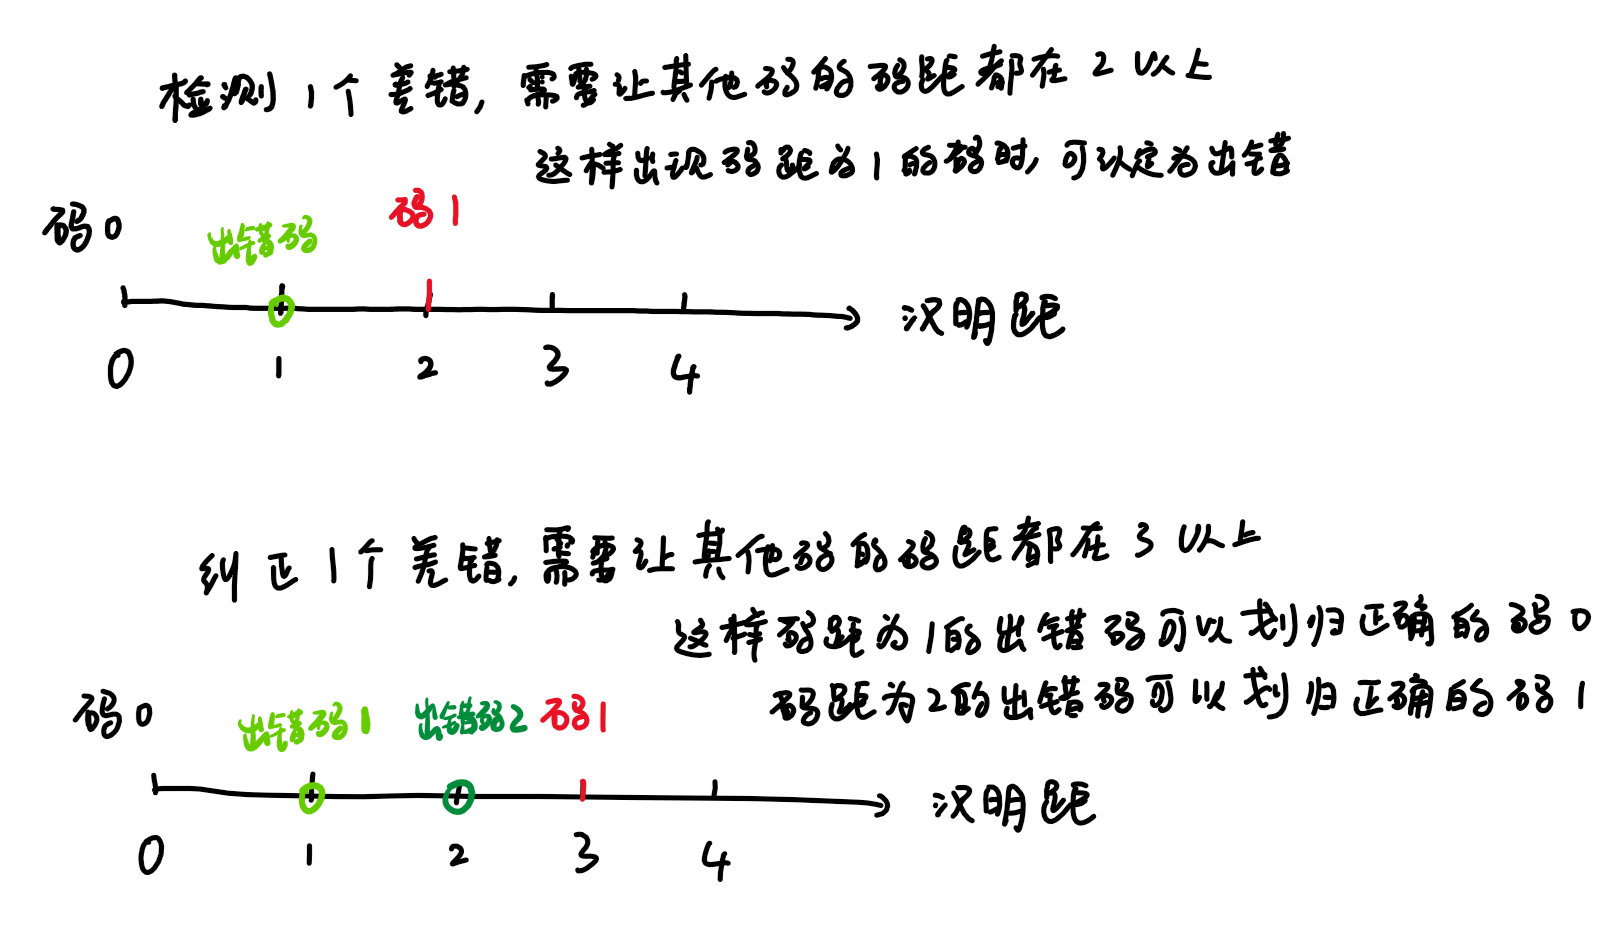 检测1个差错,需要让其他码的码距都在2以上
这样出现码距为1的码时,可认定为出错
码0
出错码
码1
汉明距
0 1 2 3 4
纠正1个差错,需要让其他码的码距都在3以上
这样码距为1的出错码可以划归正确的码0
码距为2的出错码可以划归正确的码1
码0
出错码1
出错码2
码1
汉明距
0 1 2 3 4